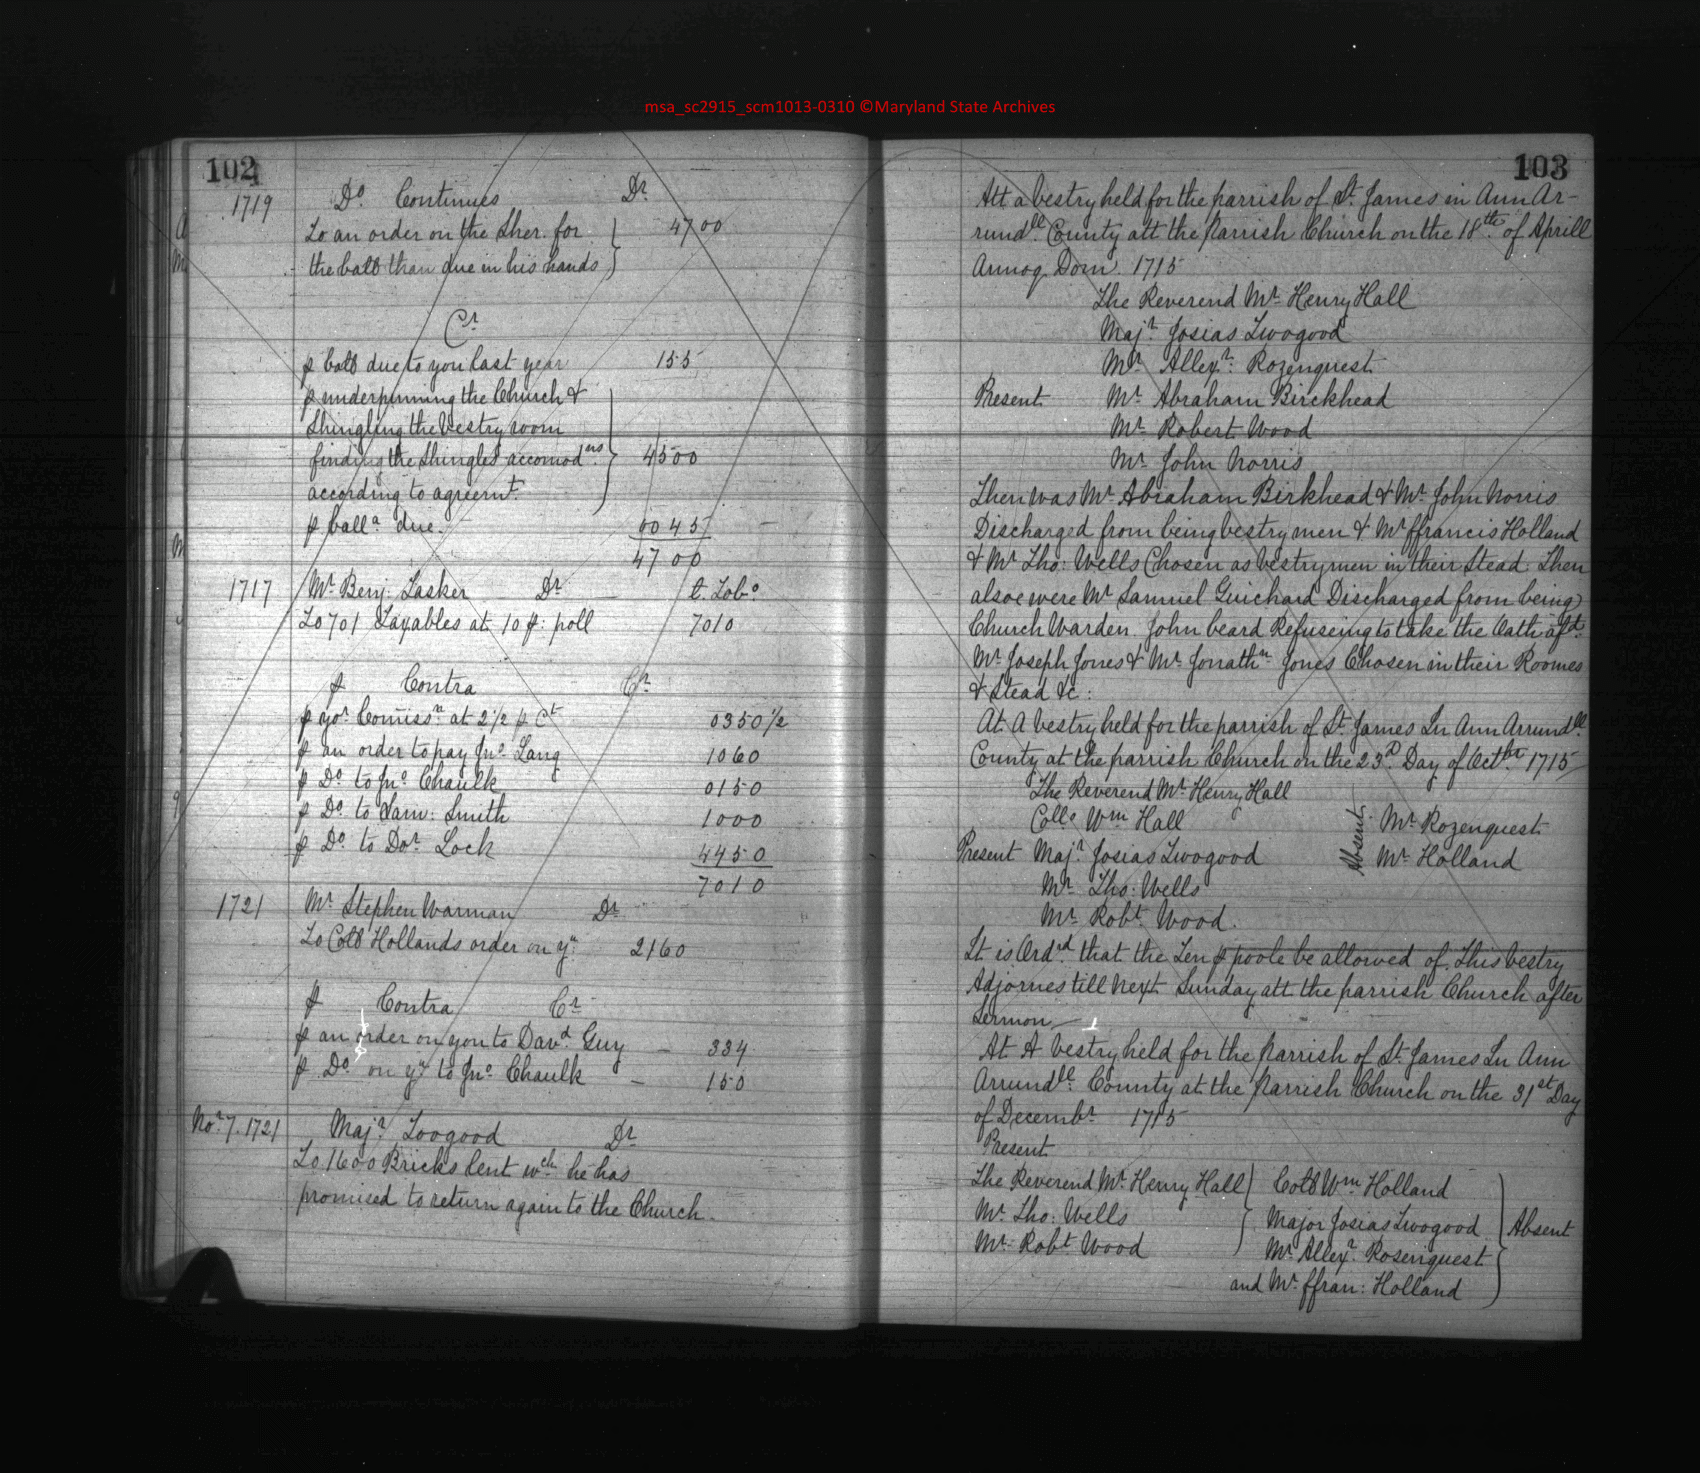 msa_sc2915_scm1013-0310 ©Maryland State Archives
102
1719 Do Continues Dr
To an order on the Sher. for 4700
the ball than due in his hands
Cr
p ball due to you last year 155
p underpinning the Church &
Shingling the Vestry room
finding the Shingles accomod.ers 4500
according to agreemt.
p balla due. 0045
4700
1717 Mr Benj. Tasker Dr t. Tobo
To 701 Taxables at 10 p: poll 7010
p Contra Cr
p yor Comissn at 2½ p Ct 0350½
p an order to pay Jno Lang 1060
p Do to Jno Chaulk 0150
p Do to Sam: Smith 1000
p Do to Dor Lock 4450
7010
1721 Mr Stephen Warman Dr
To Coll Hollands order on yu 2160
p Contra Cr
p an order on you to Davd Guy – 334
p Do on yu to Jno Chaulk – 150
Nor 7. 1721 Majr Toogood Dr
To 1600 Bricks lent wch he has
promised to return again to the Church.
103
Att a Vestry held for the parrish of St James in Ann Ar-
rundll County att the Parrish Church on the 18th of Aprill
Annoq Dom 1715
The Reverend Mr Henry Hall
Majr Josias Twogood
Mr Allexr: Rozenquest
Present Mr Abraham Birckhead
Mr Robert Wood
Mr John Norris
Then was Mr Abraham Birkhead & Mr John Norris
Discharged from being Vestry men & Mr ffrancis Holland
& Mr Tho: Wells Chosen as Vestrymen in their Stead: Then
alsoe were Mr Samuel Guichard Discharged from being
Church Warden. John beard Refuseing to take the Oath afd.
Mr Joseph Jones & Mr Jonathn Jones Chosen in their Roomes
& Stead &c:
At A Vestry held for the parrish of St James In Ann Arrundll
County at the parrish Church on the 23d Day of Octbr 1715
The Reverend Mr Henry Hall
Collo Wm Hall
Absent Mr Rozenquest
Present Majr Josias Twogood
Mr Holland
Mr Tho: Wells
Mr Robt Wood.
It is Ordrd that the Ten p poole be allowed of. This Vestry
Adjornes till Next Sunday att the parrish Church after
Sermon
At A Vestry held for the Parrish of St James In Ann
Arrundll County at the Parrish Church on the 31st Day
of Decembr 1715
Present
The Reverend Mr Henry Hall Coll Wm Holland
Mr Tho: Wells Major Josias Twogood Absent
Mr Robt Wood Mr Allexr. Rosenquest
and Mr ffran: Holland